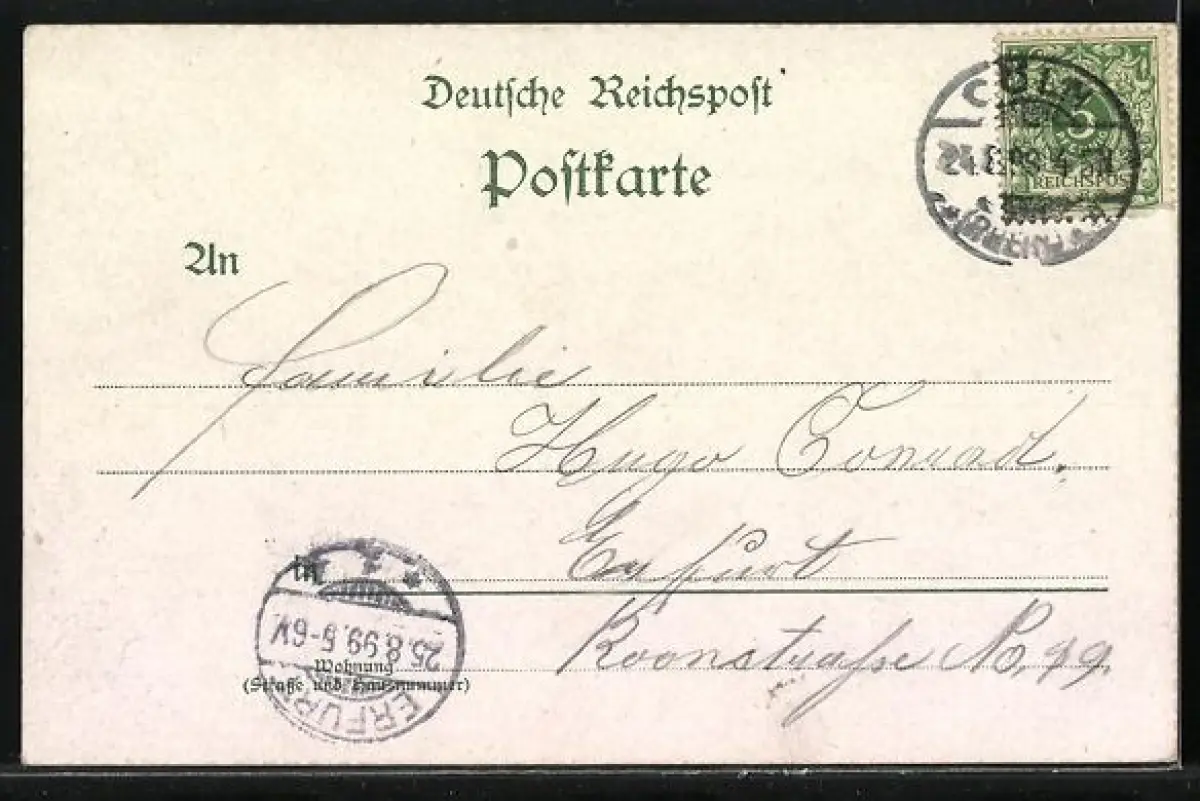 Deutsche Reichspost
Postkarte
CÖLN
24.8.99
(RHEIN)
5
REICHSPOST
An
Familie
Hugo Conrad.
Erfurt
in
Roonstraße No,
Wohnung
(Straße und Hausnummer)
ERFURT
25.8.99.5-6V